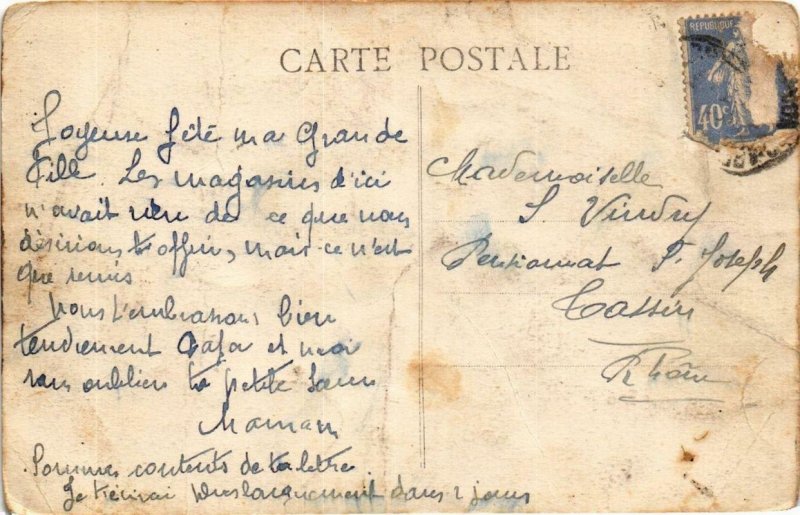 CARTE POSTALE
RÉPUBLIQUE
40c
Joyeuse fête ma Grande
fille. Les magasins d'ici
n'avait rien de ce que nous
désirions t'offrir, mais ce n'est
que remis
Nous t'embrassons bien
tendrement Papa et moi
sans oublier ta petite soeur
Maman
Sommes contents de ta lettre.
Je t'écrirai plus longuement dans 2 jours
Mademoiselle
S. Vindry
Pensionnat St Joseph
Tassin
Rhône